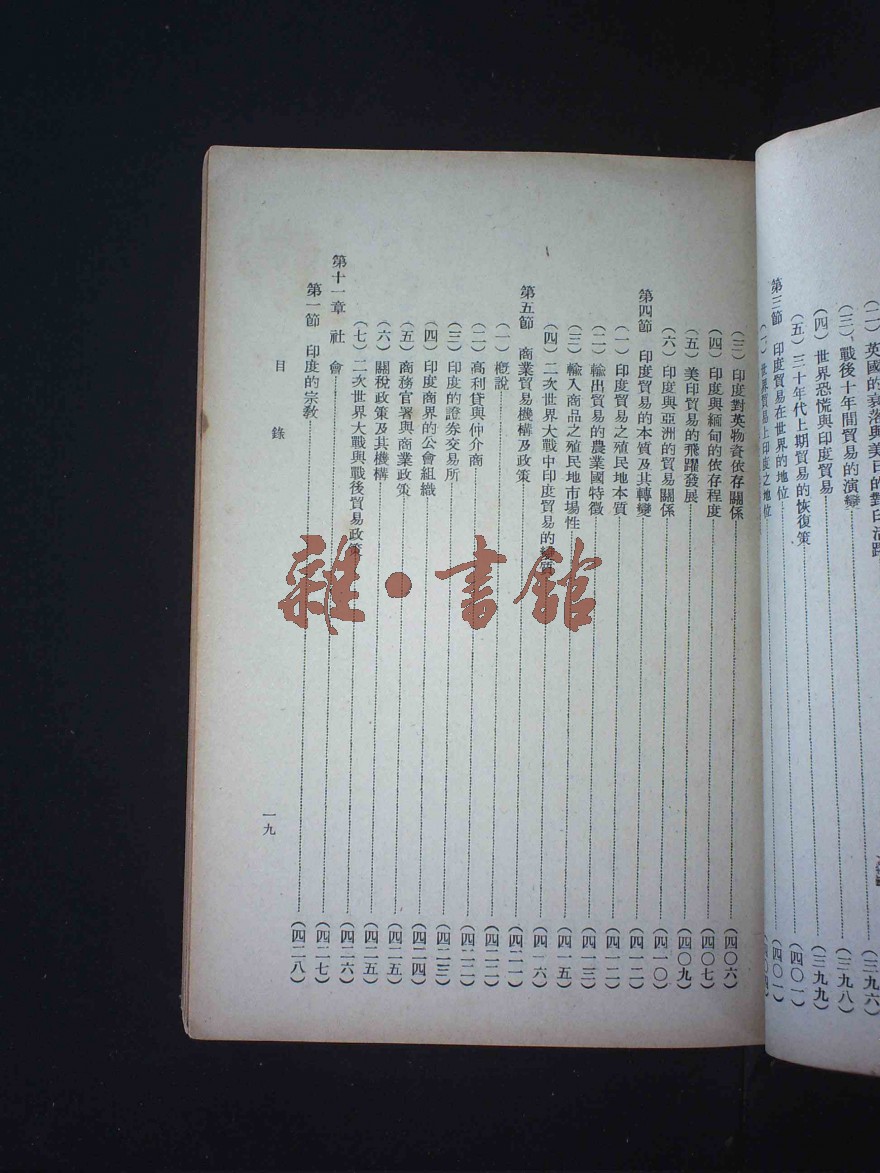 (二) 英國的衰落與美日的對印活躍……(三九六)
(三) 戰後十年間貿易的演變……(三九八)
(四) 世界恐慌與印度貿易……(三九九)
(五) 三十年代上期貿易的恢復策……(四〇一)
第三節 印度貿易在世界的地位……(四〇一)
(一) 世界貿易上印度之地位……(四〇四)
(三) 印度對英物資依存關係……(四〇六)
(四) 印度與緬甸的依存程度……(四〇七)
(五) 美印貿易的飛躍發展……(四〇九)
(六) 印度與亞洲的貿易關係……(四一〇)
第四節 印度貿易的本質及其轉變……(四一二)
(一) 印度貿易之殖民地本質……(四一二)
(二) 輸出貿易的農業國特徵……(四一三)
(三) 輸入商品之殖民地市場性……(四一五)
(四) 二次世界大戰中印度貿易的變質……(四一六)
第五節 商業貿易機構及政策……(四二一)
(一) 槪說……(四二二)
(二) 高利貸與仲介商……(四二二)
(三) 印度的證券交易所……(四二三)
(四) 印度商界的公會組織……(四二四)
(五) 商務官署與商業政策……(四二五)
(六) 關稅政策及其機構……(四二五)
(七) 二次世界大戰與戰後貿易政策……(四二六)
第十一章 社 會……(四二七)
第一節 印度的宗敎……(四二八)
目 錄
一九
雜·書館